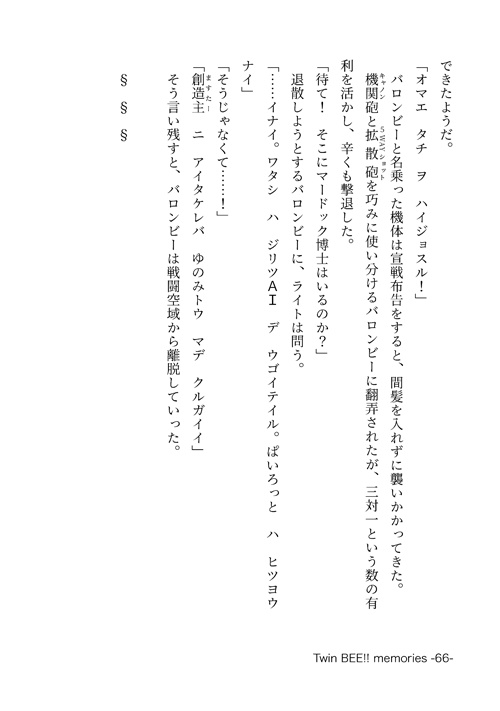 できたようだ。
「オマエ　タチ　ヲ　ハイジョスル！」
　バロンビーと名乗った機体は宣戦布告をすると、間髪を入れずに襲いかかってきた。
　機関砲と拡散砲を巧みに使い分けるバロンビーに翻弄されたが、三対一という数の有
キャノン
5WAYショット
利を活かし、辛くも撃退した。
「待て！　そこにマードック博士はいるのか？」
　退散しようとするバロンビーに、ライトは問う。
「……イナイ。ワタシ　ハ　ジリツＡＩ　デ　ウゴイテイル。ぱいろっと　ハ　ヒツヨウ
ナイ」
「そうじゃなくて……！」
「創造主　ニ　アイタケレバ　ゆのみトウ　マデ　クルガイイ」
ますたー
　そう言い残すと、バロンビーは戦闘空域から離脱していった。
§　§　§
Twin BEE!! memories -66-